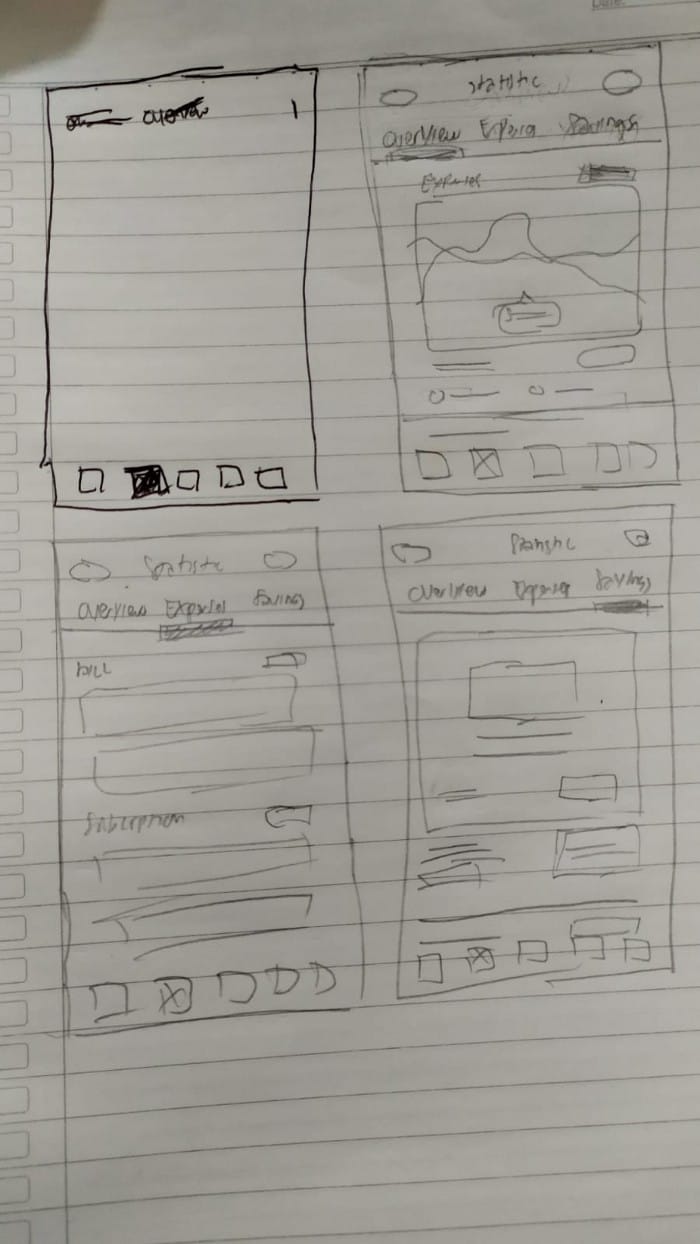 Date:
overview
Statistic
Overview Expense Savings
Expenses
Statistic
Overview Expenses Savings
Bill
Subscription
Statistic
Overview Expense Savings